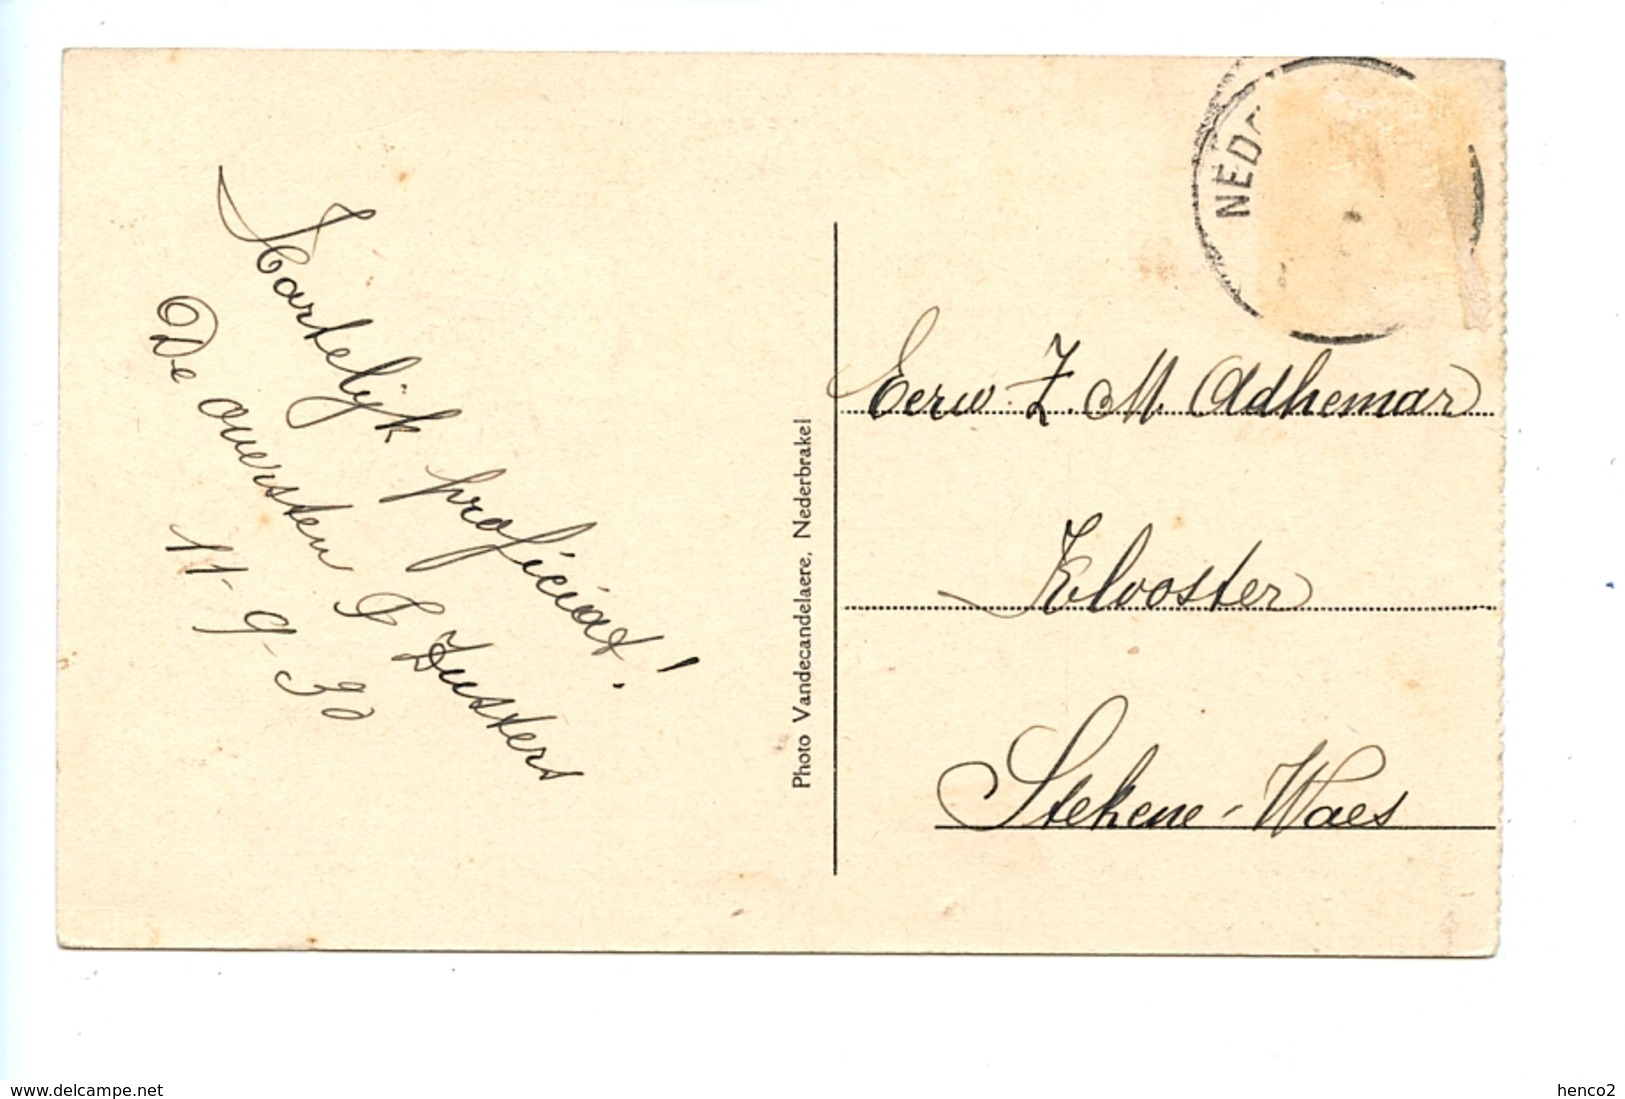 Hartelijk proficiat!
De oversten & Zusters
11-9-30
Photo Vandecandelaere, Nederbrakel
NED
Eerw. Z. M. Adhemar
Klooster
Stekene-Waes
www.delcampe.net
henco2